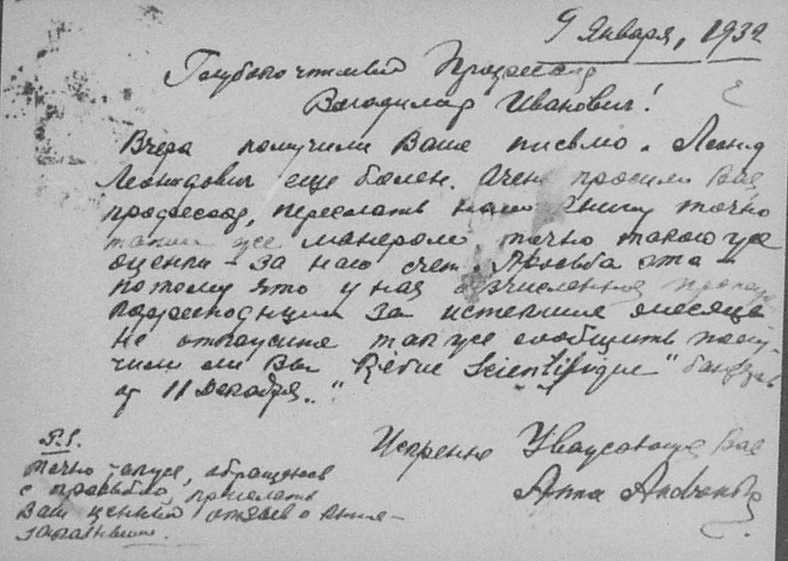 9 Января, 1932
Глубокочтимый Профессор
Владимир Иванович!
Вчера получили Ваше письмо. Леонид
Леонидович еще болен. Очень просим Вас,
профессор, переслать нашу книгу точно
таким же манером точно такою же
оценки - за наш счет. Просьба эта -
потому что у нас
за истекшие месяцы
Не откажите также сообщить полу-
чили ли Вы "Revue Scientifique"
от 11 Декабря.."
Искренне Уважающая Вас
Анна
P.S.
точно также, обращаюсь
с просьбой, прислать
Ваш ценный отзыв о